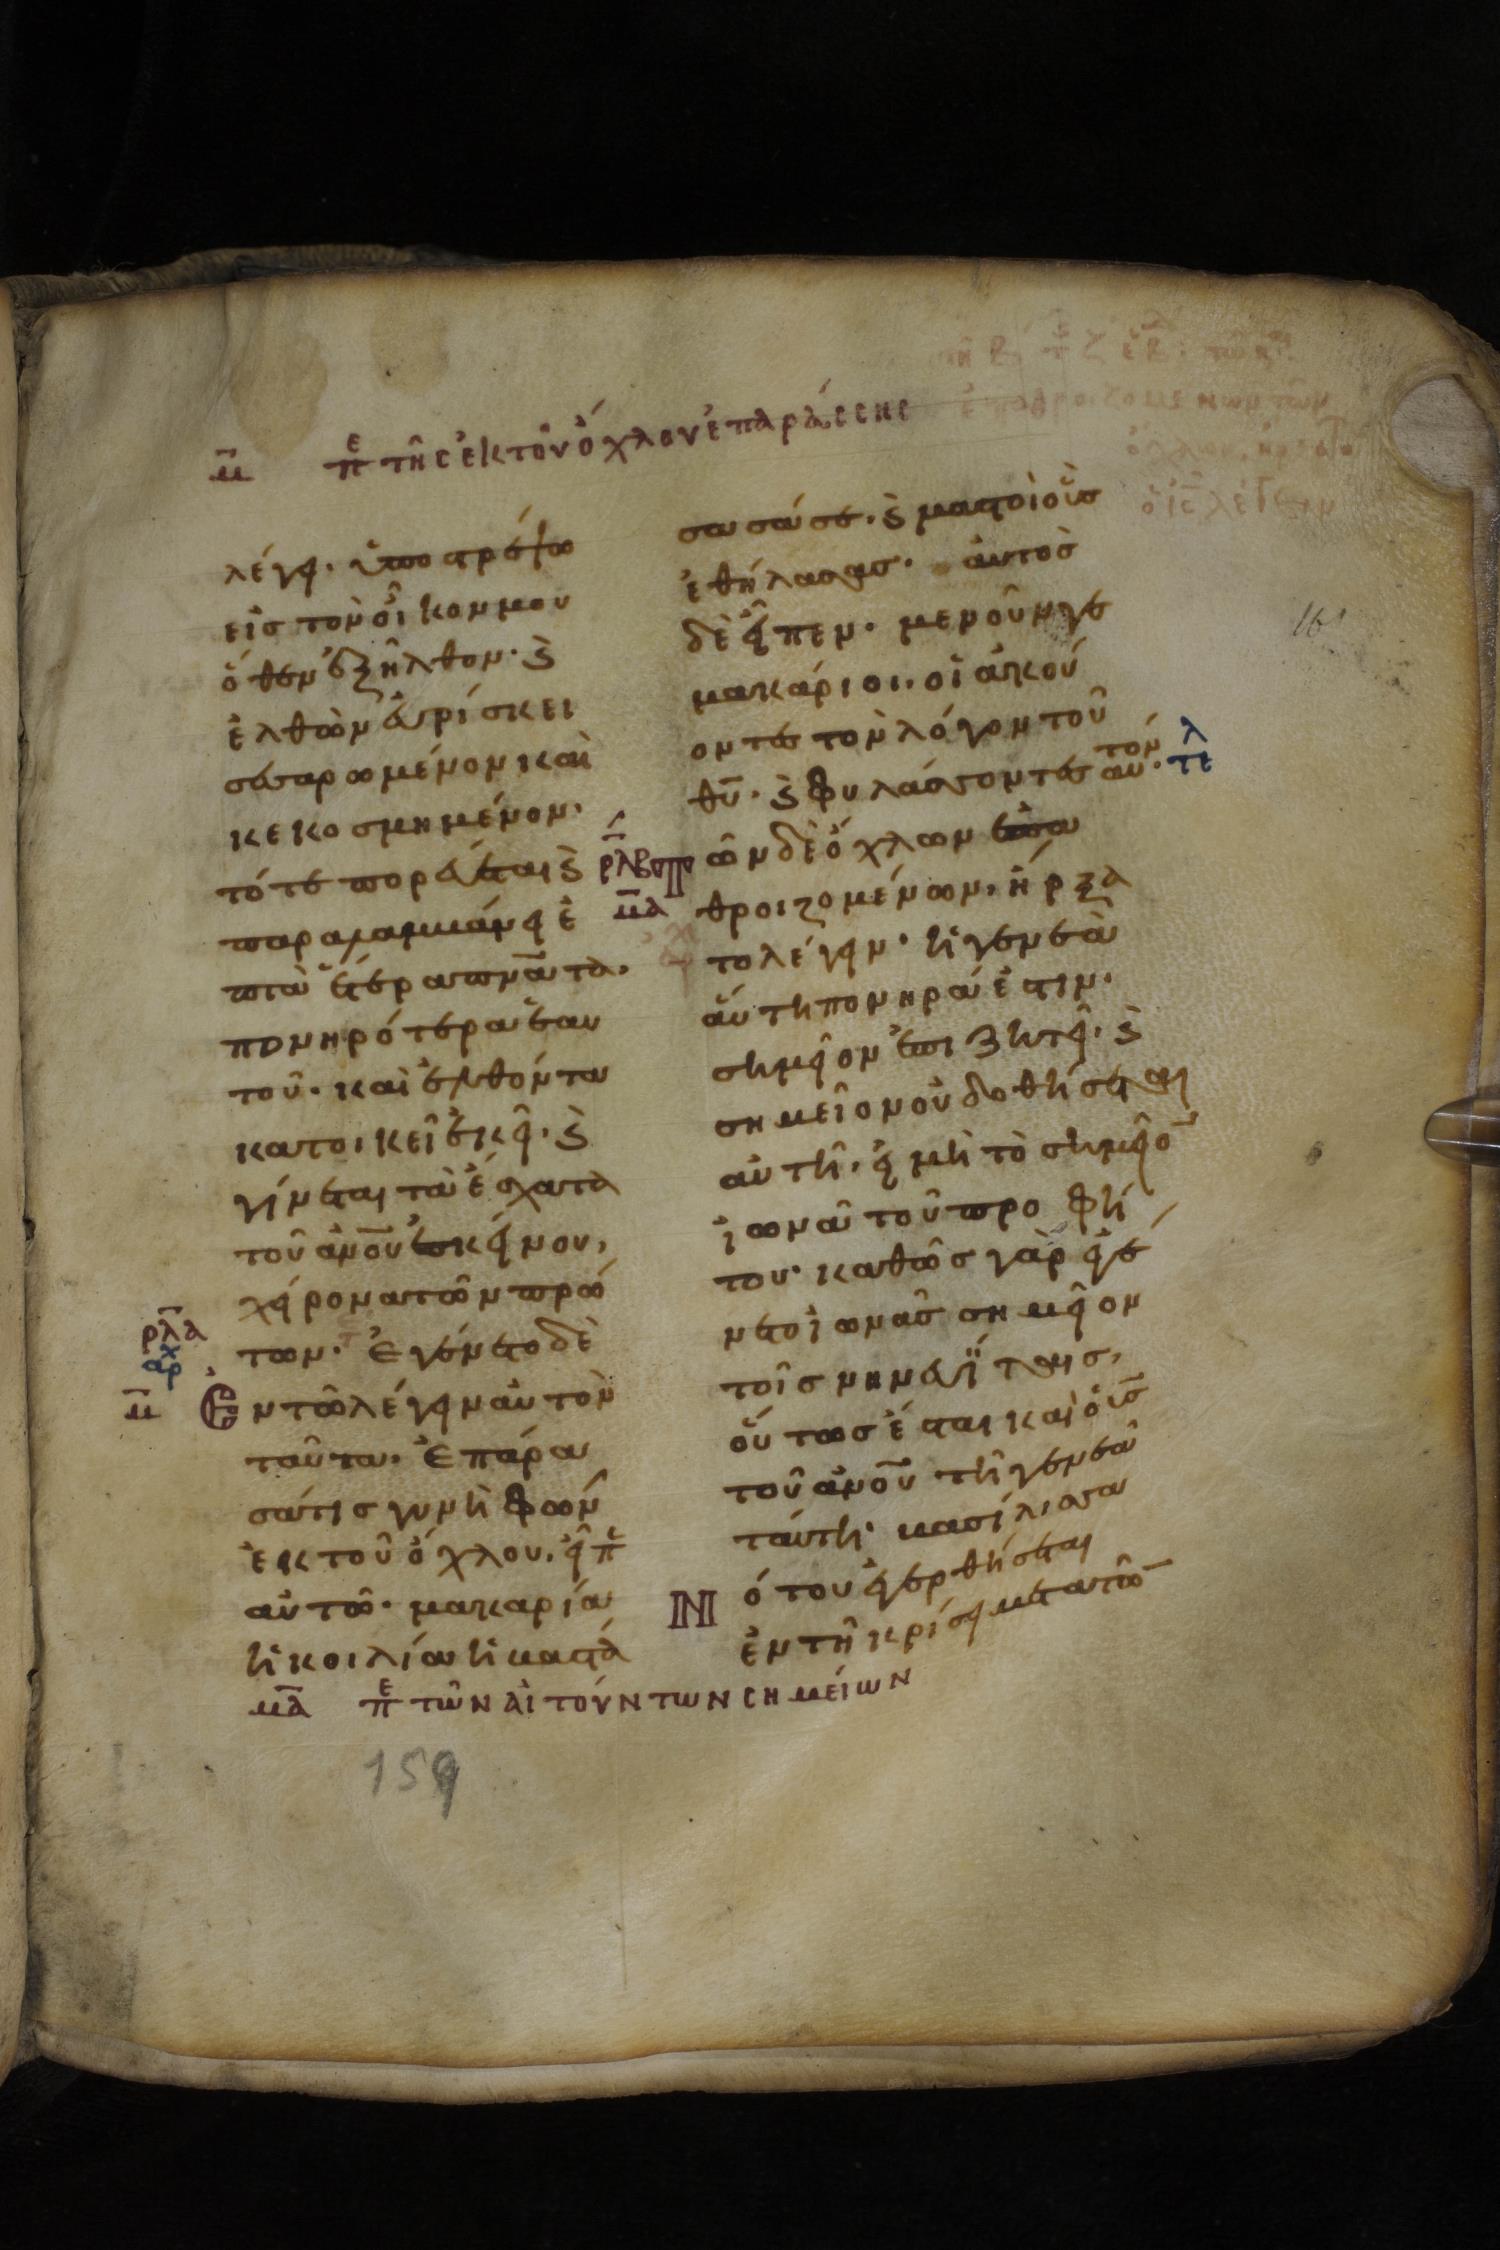 μ̅ πε τῆς ἐκ τοῦ ὄχλου ἐπαράσσης
λέγει· ὑποστρέψω
εἰς τὸν οἶκον μου
ὅθεν ἐξῆλθον· ϗ
ἐλθὼν εὑρίσκει
σεσαρωμένον καὶ
κεκοσμημένον·
τότε πορεύεται ϗ
παραλαμβάνει ἑ
πτὰ ἕτερα πν̅α̅τα·
πονηρότερα ἑαυ
τοῦ· καὶ ἐλθόντα
κατοικεῖ ἐκεῖ· ϗ
γίνεται τὰ ἔσχατα
τοῦ ἀν̅ο̅υ̅ ἐκείνου,
χείρονα τῶν πρώ
των· Ἐγένετο δὲ
ρλ̅α̅
αρχ
μ̅
Ἐν τῶ λέγειν αὐτὸν
ταῦτα· ἐπάρα
σά τις γυνὴ φωνὴ
ἐκ τοῦ ὄχλου, εἶπε
αὐτῶ· μακαρία
ἡ κοιλία ἡ βαστά
σασά σε· ϗ μαστοὶ οὓς
ἐθήλασας· αὐτὸς
δὲ εἶπεν· μενοῦνγε
μακάριοι, οἱ ἀκού
οντες τὸν λόγον τοῦ
θ̅υ̅· ϗ φυλάσσοντες αὐτόν· τελ
ρλ̅β̅
μ̅α̅
Τῶν δὲ ὄχλων ἐπα
θροιζομένων, ἤρξα
το λέγειν· ἡ γενεὰ
αὕτη πονηρά ἐστιν·
σημεῖον ἐπιζητεῖ· ϗ
σημεῖον οὐ δοθήσεται
αὐτῆ, εἰ μὴ τὸ σημεῖο̅
ἰωνᾶ τοῦ προφή
του· καθὼς γὰρ ἐγέ
νετο ἰωνᾶς σημεῖον
τοῖς νηνευΐταις,
οὕτως ἔσται καὶ ὁ υ̅ς̅
τοῦ ἀν̅ο̅υ̅ τῆ γενεᾶ
ταύτη· βασίλισσα
Ν ότου ἐγερθήσεται
ἐν τῆ κρίσει μετὰ τῶ̅
μ̅α̅ πε τῶν αἰτούντων σημείων
159